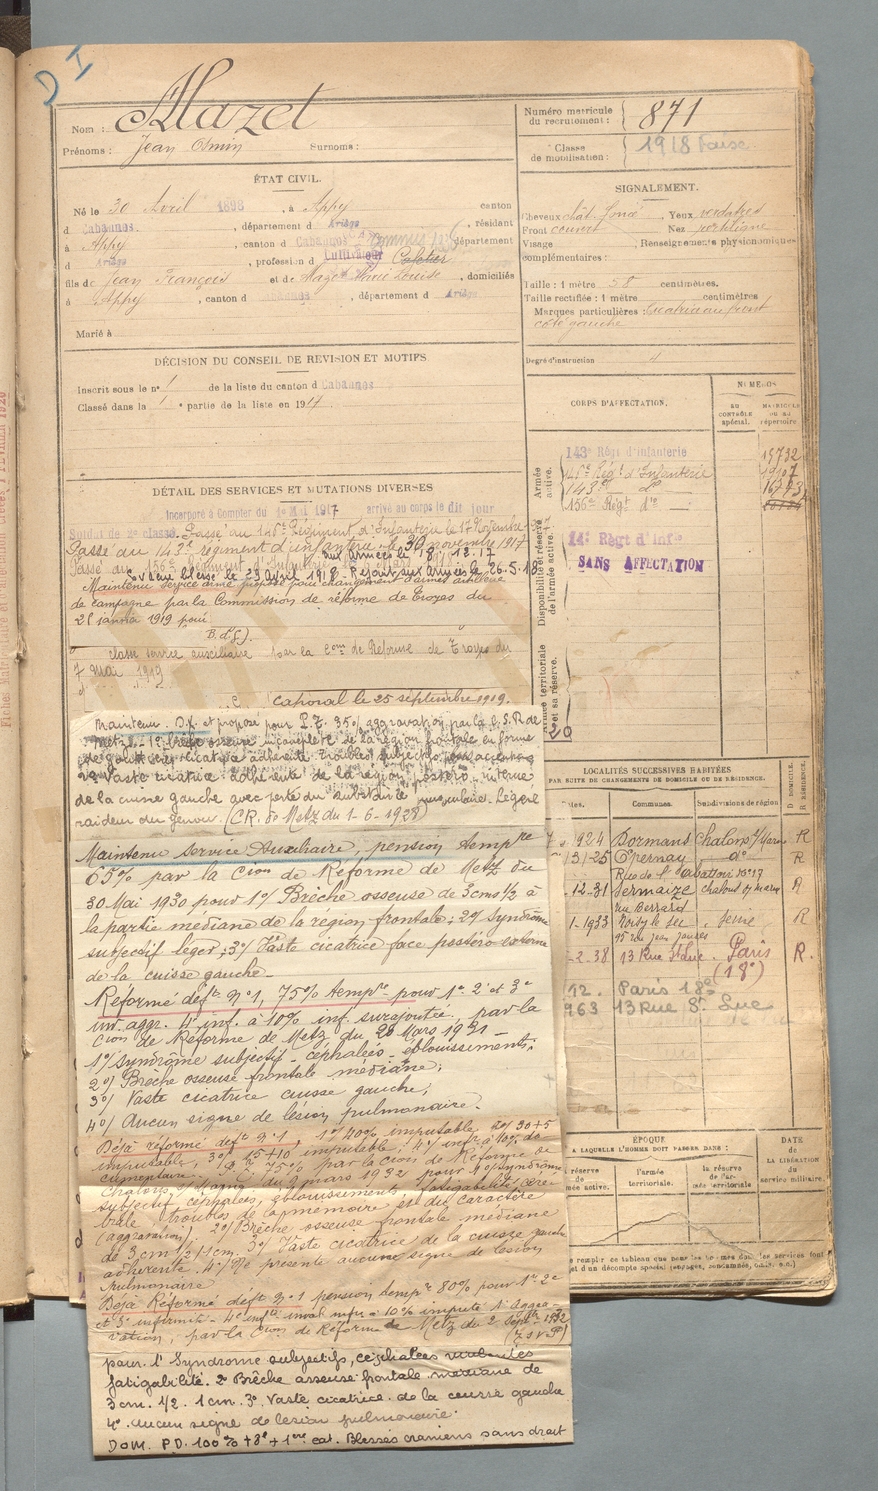 D I
Nom : Mazet
Prénoms : Jean Osmin Surnoms :
Numéro matricule du recrutement : 871
Classe de mobilisation : 1918
ÉTAT CIVIL.
Né le 30 Avril 1898, à Appy canton
d Cabannes, département d Ariège, résident
à Appy, canton d Cabannes département
d Ariège, profession d Cultivateur
fils de Jean François et de Marie Louise, domiciliés
à Appy, canton d Cabannes, département d Ariège
Marié à
SIGNALEMENT.
Cheveux chât. foncé, Yeux verdatres
Front couvert Nez
Visage Renseignements physionomiques
complémentaires :
Taille : 1 mètre 58 centimètres.
Taille rectifiée : 1 mètre centimètres
Marques particulières : Cicatrice au front
côté gauche
Degré d'instruction 4
DÉCISION DU CONSEIL DE REVISION ET MOTIFS.
Inscrit sous le n° 1 de la liste du canton d Cabannes
Classé dans la 1e partie de la liste en 1917.
CORPS D'AFFECTATION.
NUMÉROS
AU CONTRÔLE spécial.
MATRICULE ou au répertoire
Armée active.
143e Régt d'infanterie 15732
146e Régt d'Infanterie 19107
143e do 16743
156e Régt do
Disponibilité et réserve de l'armée active.
14e Régt d'Infie
SANS AFFECTATION
Armée territoriale et sa réserve.
20
DÉTAIL DES SERVICES ET MUTATIONS DIVERSES
Incorporé à compter du 1er Mai 1917 arrivé au corps le dit jour
Soldat de 2e classe. Passé au 146e Régiment d'Infanterie le 17 Novembre
Passé au 143e régiment d'infanterie le 30 novembre 1917
aux armées le 18.12.17
Passé au 156e régiment d'Infanterie
Evacué blessé le 29 avril 1918 - Retour aux armées le 26.5.18
Maintenu service armé proposé pour changement d'armes artillerie
de campagne par la Commission de réforme de Troyes du
28 janvier 1919 pour
classé service auxiliaire par la Com de Réforme de Troyes du
7 mai 1919
caporal le 25 septembre 1919.
Maintenu. S.X. et proposé pour P.T. 35% aggravation par la C.S.R. de
Metz. 1° brèche osseuse incomplète de la région frontale en forme
de gouttière cicatrice adhérente troubles subjectifs
2° Vaste cicatrice adhérente de la région postéro interne
de la cuisse gauche avec perte du substance musculaire. Légère
raideur du genou. (C.R. de Metz du 1-6-1928)
Maintenu service Auxiliaire, pension tempre
65% par la Cion de Réforme de Metz du
30 Mai 1930 pour 1°/ Brêche osseuse de 3cms ½ à
la partie médiane de la région frontale ; 2°/ Syndrôme
subjectif léger ; 3°/ Vaste cicatrice face postéro externe
de la cuisse gauche -
Réformé deft n°1, 75% tempre pour 1° 2° et 3°
inf. aggr. 4° inf. à 10% inf. surajoutée, par la
Cion de Réforme de Metz du 20 Mars 1931 -
1°/ syndrôme subjectif - céphalées - éblouissements ;
2°/ Brêche osseuse frontale médiane ;
3°/ Vaste cicatrice cuisse gauche ;
4°/ Aucun signe de lésion pulmonaire.
Déjà réformé deft n°1, 1°/ 40% imputable 2°/ 30+5
imputable, 3°/ 15+10 imputable ; 4°/ infr à 10% do
75% par la Cion de Réforme de
Chalons s/Marne du 9 mars 1932 pour 1°/ syndrôme
subjectif céphalées, éblouissements, fatigabilité céré-
brale troubles de la mémoire et du caractère
(aggravation) 2°/ Brêche osseuse frontale médiane
de 3cm 1/2 / 1cm. 3°/ Vaste cicatrice de la cuisse gauche
adhérente. 4°/ Ne présente aucune signe de lésion
Pulmonaire
Déjà Réformé deft n°1 pension tempre 80% pour 1° 2°
et 3° infirmité - 4° infté inval infre à 10% imputé 1° aggra-
vation, par la Cion de Réforme de Metz du 2 Septbre 1932
pour 1° Syndrome subjectifs, céphalées
fatigabilité. 2° Brêche osseuse frontale médiane de
3cm. 1/2. 1cm. 3°. Vaste cicatrice de la cuisse gauche
4°. Aucun signe de lésion pulmonaire.
DOM. P.D. 100% + 8° + 1ère cat. Blessés craniens sans droit
LOCALITÉS SUCCESSIVES HABITÉES
PAR SUITE DE CHANGEMENTS DE DOMICILE OU DE RÉSIDENCE.
Dates. Communes. Subdivisions de région D DOMICILE. R RÉSIDENCE.
1924 Dormans Chalons s/Marne R
/3/-25 Epernay do R
Rue de l'abattoir
.12-31 Sermaize chalons s/ marne R
1-1933 Noisy le sec Seine R
-2-38 13 Rue St Luc. Paris (18°) R.
Paris 18e
963 13 Rue St. Luc
ÉPOQUE
A LAQUELLE L'HOMME DOIT PASSER DANS :
DATE DE LA LIBÉRATION du service militaire.
la réserve de l'armée active.
l'armée territoriale.
la réserve de l'armée territoriale